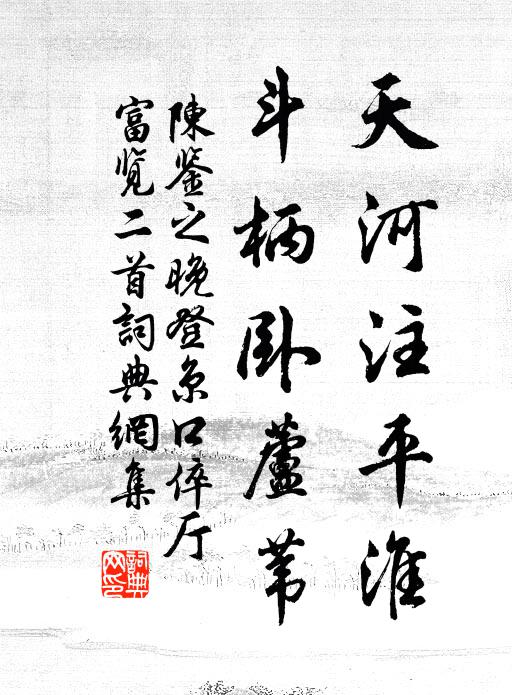 天河注平淮
斗柄卧蘆葦
陳鉴之晚登京口倅厅
富览二首詞典網集
詞典
网印